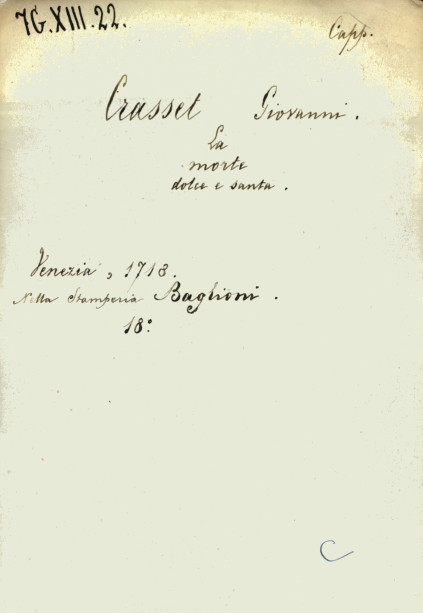 7G.XIII.22.
Capp.
Crasset Giovanni.
La
morte
dolce e santa.
Venezia, 1718.
Nella Stamperia Baglioni.
18.°
C